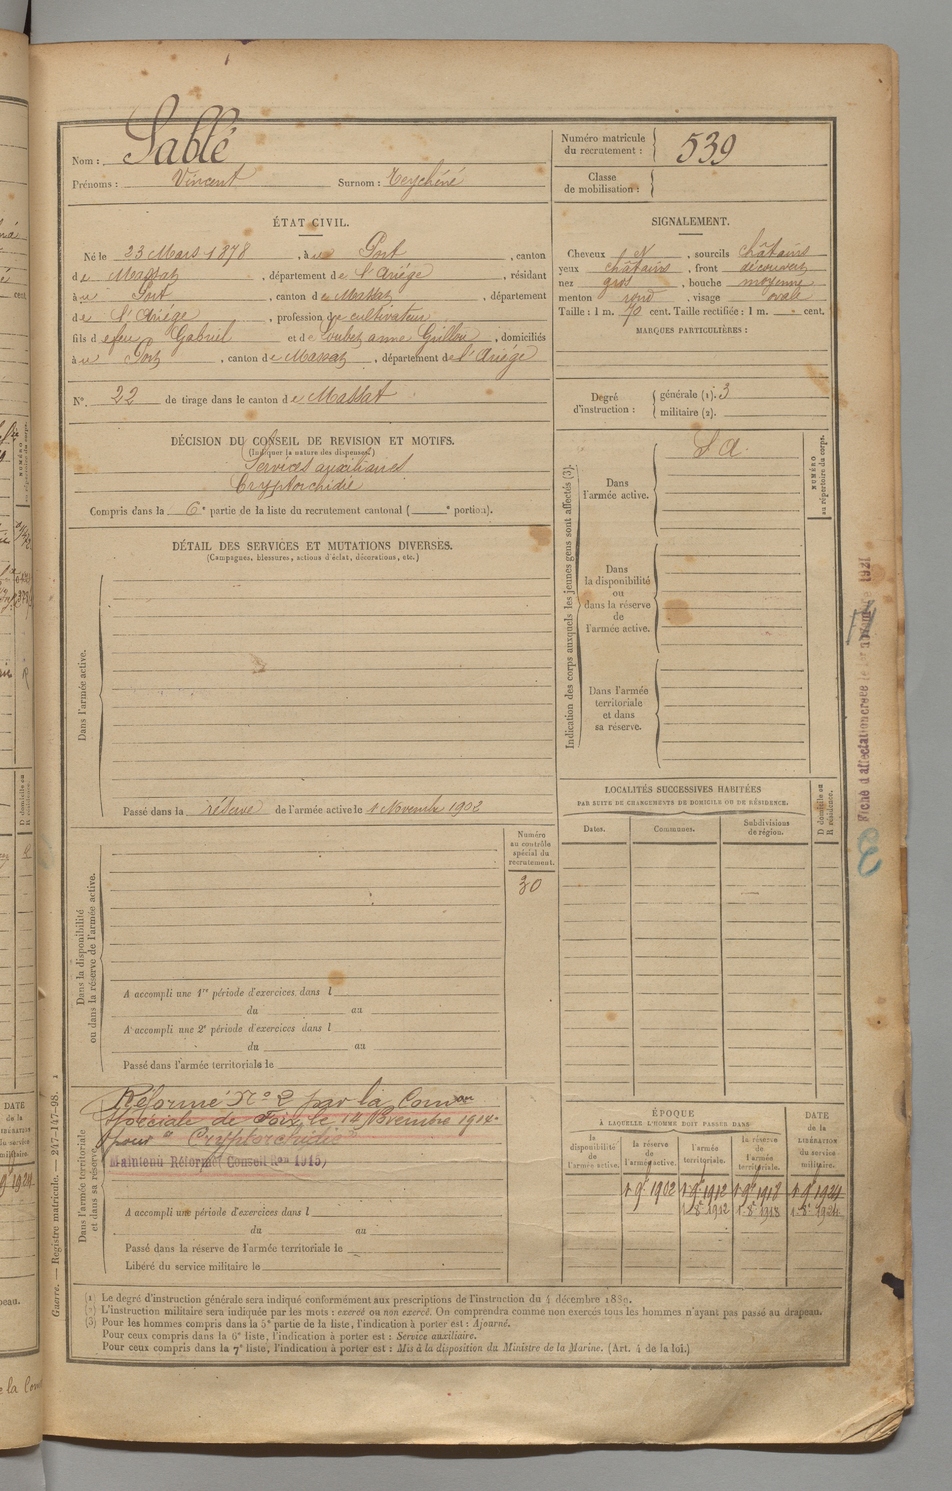 Nom : Sablé
Prénoms : Vincent Surnom : Teychéné
Numéro matricule du recrutement : 539
Classe de mobilisation :
ÉTAT CIVIL.
Né le 23 Mars 1878, à u Port, canton
de Massat, département de l'Ariége, résidant
à u Port, canton de Massat, département
de l'Ariége, profession de cultivateur
fils d e feu Gabriel et de Loubet anne Grillou, domiciliés
à u Port, canton de Massat, département de l'Ariége
N° 22 de tirage dans le canton de Massat
SIGNALEMENT.
Cheveux et, sourcils châtains
yeux châtains, front découvert
nez gros, bouche moyenne
menton rond, visage ovale
Taille : 1 m. 70 cent. Taille rectifiée : 1 m. cent.
MARQUES PARTICULIÈRES :
Degré d'instruction : générale (1). 3
militaire (2).
DÉCISION DU CONSEIL DE REVISION ET MOTIFS.
(Indiquer la nature des dispenses.)
Services auxiliaires
Cryptorchidie
Compris dans la 6e partie de la liste du recrutement cantonal ( e portion).
DÉTAIL DES SERVICES ET MUTATIONS DIVERSES.
(Campagnes, blessures, actions d'éclat, décorations, etc.)
Dans l'armée active.
Passé dans la réserve de l'armée active le 1 Novembre 1902
Indication des corps auxquels les jeunes gens sont affectés (3).
Dans l'armée active.
S A.
NUMÉRO au répertoire du corps.
Dans la disponibilité ou dans la réserve de l'armée active.
Dans l'armée territoriale et dans sa réserve.
LOCALITÉS SUCCESSIVES HABITÉES
PAR SUITE DE CHANGEMENTS DE DOMICILE OU DE RÉSIDENCE.
Dates. Communes. Subdivisions de région. D domicile ou R résidence.
Dans la disponibilité ou dans la réserve de l'armée active.
Numéro au contrôle spécial du recrutement.
30
A accompli une 1re période d'exercices dans l
du au
A accompli une 2e période d'exercices dans l
du au
Passé dans l'armée territoriale le
Dans l'armée territoriale et dans sa réserve.
Réformé N° 2 par la Comon
Spéciale de Foix le 14 Novembre 1914
pour "Cryptorchidie"
Maintenu Réformé (Conseil Ron 1915)
A accompli une période d'exercices dans l
du au
Passé dans la réserve de l'armée territoriale le
Libéré du service militaire le
ÉPOQUE
À LAQUELLE L'HOMME DOIT PASSER DANS
la disponibilité de l'armée active. la réserve de l'armée active. l'armée territoriale. la réserve de l'armée territoriale.
DATE de la LIBÉRATION du service militaire.
1 9e 1902 1 9e 1912 1 9e 1918 1 9e 1924
1 8e 1912 1 8e 1918 1 8e 1924
(1) Le degré d'instruction générale sera indiqué conformément aux prescriptions de l'instruction du 4 décembre 1889.
(2) L'instruction militaire sera indiquée par les mots : exercé ou non exercé. On comprendra comme non exercés tous les hommes n'ayant pas passé au drapeau.
(3) Pour les hommes compris dans la 5e partie de la liste, l'indication à porter est : Ajourné.
Pour ceux compris dans la 6e liste, l'indication à porter est : Service auxiliaire.
Pour ceux compris dans la 7e liste, l'indication à porter est : Mis à la disposition du Ministre de la Marine. (Art. 4 de la loi.)
Guerre. — Registre matricule. — 247-147-98.
Fiche d'affectation créée le 1er novembre 1921